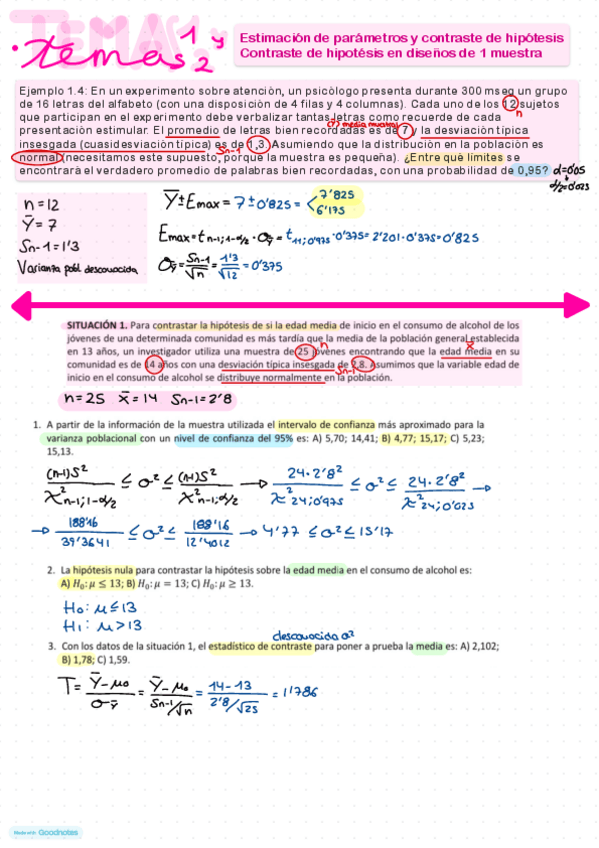 TEMAS
temas 1 y 2
Estimación de parámetros y contraste de hipótesis
Contraste de hipotésis en diseños de 1 muestra
Ejemplo 1.4: En un experimento sobre atención, un psicólogo presenta durante 300 mseg un grupo
de 16 letras del alfabeto (con una disposición de 4 filas y 4 columnas). Cada uno de los 12 sujetos
n
que participan en el experimento debe verbalizar tantas letras como recuerde de cada
(Ȳ) media muestral
presentación estimular. El promedio de letras bien recordadas es de 7 y la desviación típica
insesgada (cuasidesviación típica) es de 1,3. Asumiendo que la distribución en la población es
Sn-1
normal (necesitamos este supuesto, porque la muestra es pequeña). ¿Entre qué límites se
encontrará el verdadero promedio de palabras bien recordadas, con una probabilidad de 0,95? α=0'05
α/2=0'025
n=12
Ȳ=7
Sn-1=1'3
Varianza pobl. desconocida
Ȳ±Emax = 7±0'825 = < 7'825
6'175
Emax = t n-1; 1-α/2 · σȲ = t 11; 0'975 · 0'375 = 2'201·0'375 = 0'825
σȲ = Sn-1/√n = 1'3/√12 = 0'375
SITUACIÓN 1. Para contrastar la hipótesis de si la edad media de inicio en el consumo de alcohol de los
jóvenes de una determinada comunidad es más tardía que la media de la población general establecida
en 13 años, un investigador utiliza una muestra de 25 jóvenes encontrando que la edad media en su
n
x̄
comunidad es de 14 años con una desviación típica insesgada de 2,8. Asumimos que la variable edad de
Sn-1
inicio en el consumo de alcohol se distribuye normalmente en la población.
n=25 x̄=14 Sn-1=2'8
1. A partir de la información de la muestra utilizada el intervalo de confianza más aproximado para la
varianza poblacional con un nivel de confianza del 95% es: A) 5,70; 14,41; B) 4,77; 15,17; C) 5,23;
15,13.
(n-1)S²/χ² n-1; 1-α/2 ≤ σ² ≤ (n-1)S²/χ² n-1; α/2 → 24·2'8²/χ² 24; 0'975 ≤ σ² ≤ 24·2'8²/χ² 24; 0'025 →
→ 188'16/39'3641 ≤ σ² ≤ 188'16/12'4012 → 4'77 ≤ σ² ≤ 15'17
2. La hipótesis nula para contrastar la hipótesis sobre la edad media en el consumo de alcohol es:
A) H₀: μ ≤ 13; B) H₀: μ = 13; C) H₀: μ ≥ 13.
H₀: μ≤13
H₁: μ>13
desconocida σ²
3. Con los datos de la situación 1, el estadístico de contraste para poner a prueba la media es: A) 2,102;
B) 1,78; C) 1,59.
T = Ȳ-μ₀/σȲ = Ȳ-μ₀/Sn-1/√n = 14-13/2'8/√25 = 1'786
Made with Goodnotes